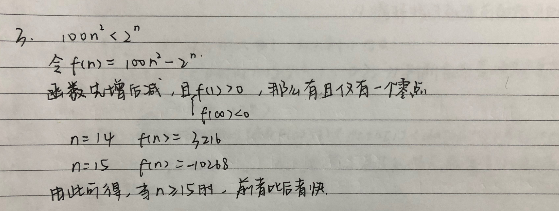 3. 100n² < 2ⁿ
令 f(n) = 100n² - 2ⁿ.
函数先增后减, 且f(1)>0, 那么有且仅有一个零点
f(∞)<0
n=14 f(n)= 3216
n=15 f(n)= -10268
由此可得, 当n≥15时, 前者比后者快.